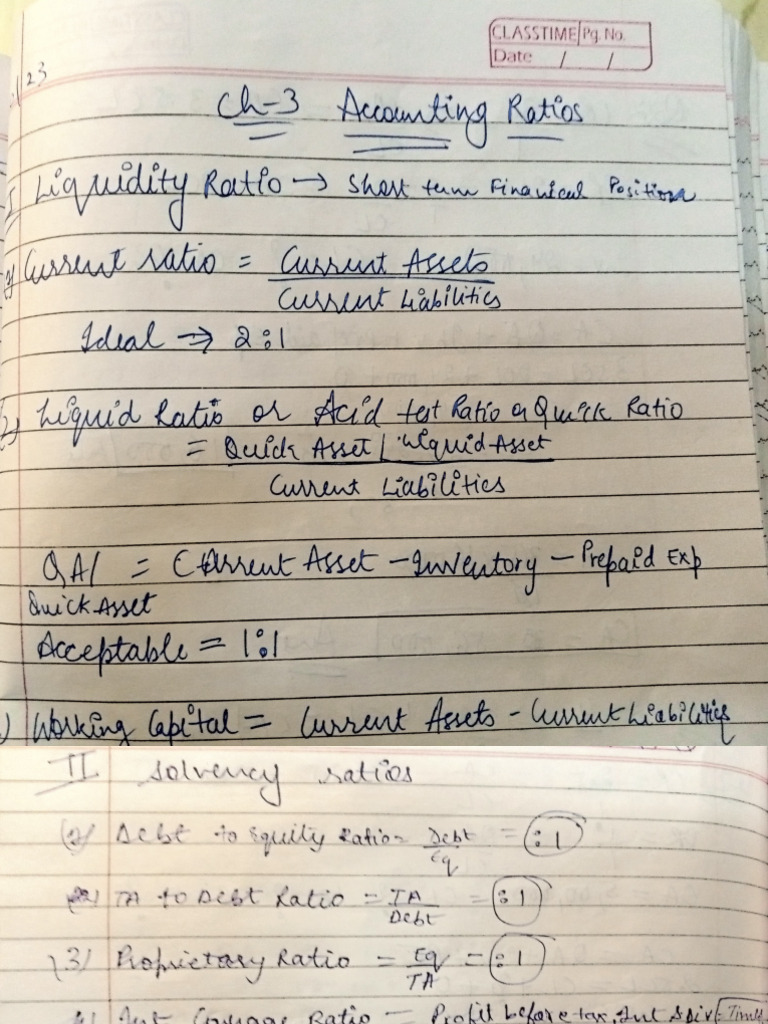 CLASSTIME Pg. No.
Date / /
/23
Ch-3 Accounting Ratios
I Liquidity Ratio → Short term Financial Position
1) Current ratio = Current Assets
Current Liabilities
Ideal ⇒ 2:1
2) Liquid Ratio or Acid test Ratio or Quick Ratio
= Quick Asset / Liquid Asset
Current Liabilities
QA/ = Current Asset - Inventory - Prepaid Exp
Quick Asset
Acceptable = 1:1
) Working Capital = Current Assets - Current Liabilities
II Solvency ratios
Debt to Equity Ratio = Debt = :1
Eq
TA to Debt Ratio = TA = :1
Debt
(3) Proprietary Ratio = Eq = :1
TA
4) Int Coverage Ratio = Profit before tax, Int & Div = Times